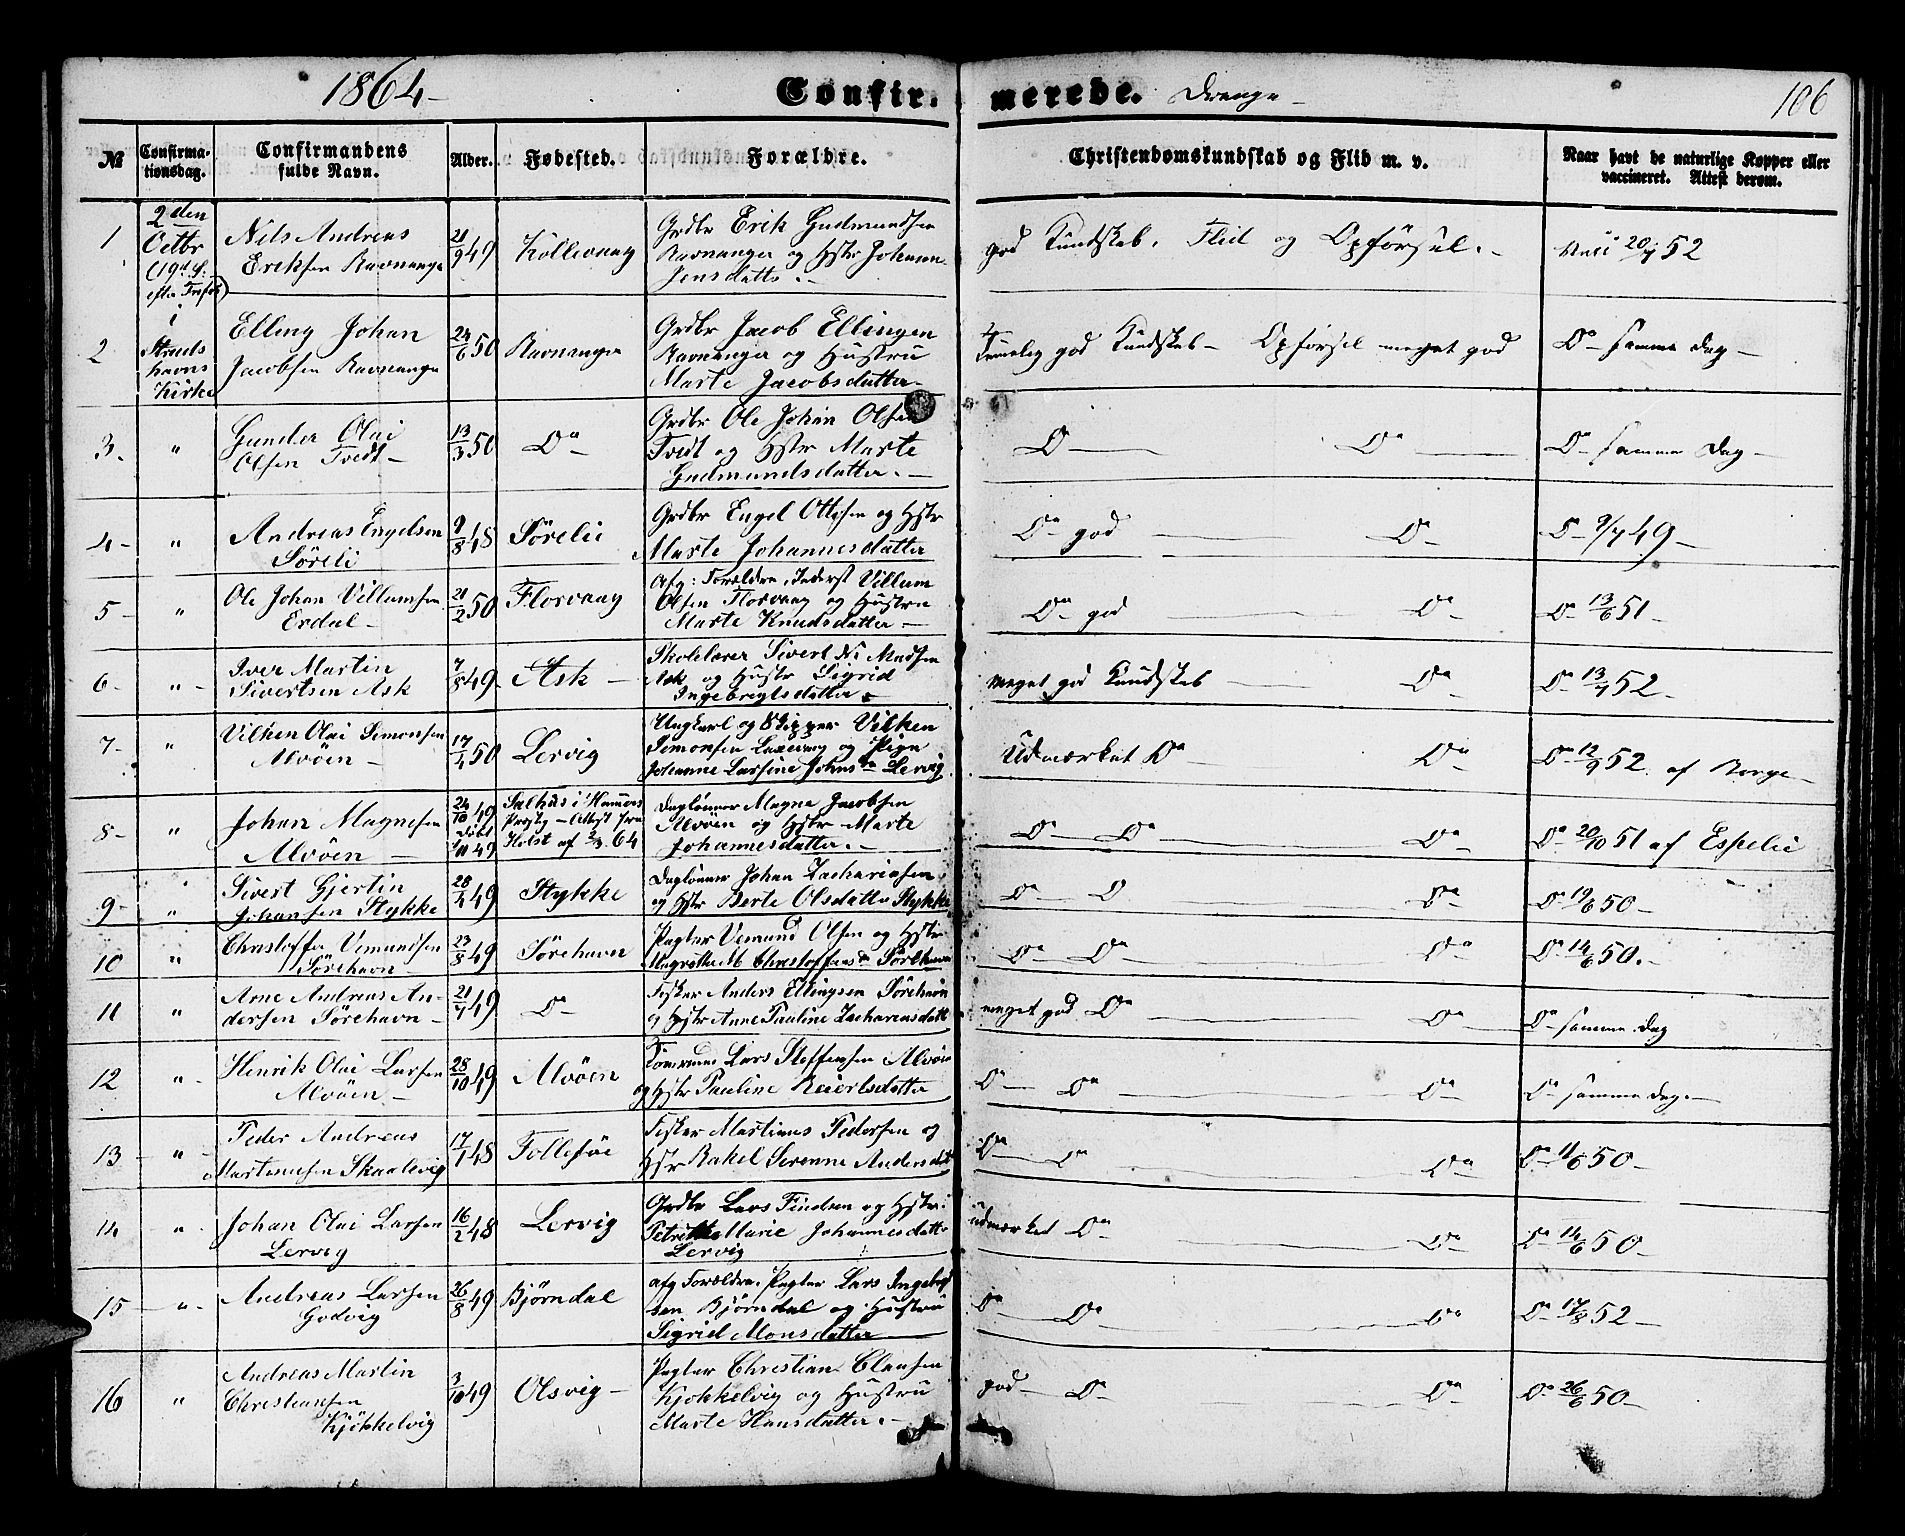 1864
Confirmerede. Drenge
106
№
Confirmationsdag.
Confirmandens fulde Navn.
Alder.
Fødested.
Forældre.
Christendomskundskab og Flid m. v.
Naar havt de naturlige Kopper eller vaccineret. Attest derom.
1
2den
Octbr
(19d S.
efter Trefol)
i
Struds
havns
Kirke
Nils Andreas
Eriksen Ravnanger
21/9 49
Kollevaag
Grdbr Erik Gudmundsen
Ravnanger og Hstr Johann
Jensdatter
god Kundskab, Flid og Opførsel.
Vacc 20/7 52
2
Elling Johan
Jacobsen Ravnanger
24/6 50
Ravnanger
Grdbr Jacob Ellingsen
Ravnanger og Hustru
Marte Jacobsdatter
temelig god Kundskab - Opførsel meget god
Do samme Dag
3
"
Gunder Olai
Olsen Tvedt
13/3 50
Do
Grdbr Ole Johan Olsen
Tvedt og Hstr Marte
Gudmundsdatter
Do Do
Do samme Dag
4
"
Andreas Engelsen
Søreli
9/8 48
Sørelie
Grdbr Engel Ottesen og Hstr
Marte Johannesdatter
Do god Do
Do 9/7 49
5
"
Ole Johan Villumsen
Erdal
21/2 50
Florvaag
Afg: Forældre, Inderst Villum
Olsen Florvaag og Hustru
Marte Knudsdatter
Do god Do
Do 13/6 51
6
"
Iver Martin
Sivertsen Ask
7/8 49
Ask
Skolelærer Sivert Ni Madsen
Ask og Hustr Sigrid
Ingebregtsdatter
meget god Kundskab Do
Do 13/7 52
7
"
Vilken Olai Simonsen
Alvøen
17/4 50
Lervig
Ungkarl og Skipper Vilken
Simonsen og Pige
Johanne Larsine Johnsdr Lervig
Udmærket Do Do
Do 12/9 52 af Borge
8
"
Johan Magnesen
Alvøen
24/10 49
døbt
1/11 49
Salhus i Hammer
Prgjld - Attest fra
Holst af 2/3 64
Daglønner Magne Jacobsen
Alvøen og Hstr Marte
Johannesdatter
Do Do Do
Do 20/10 51 af Espelie
9
"
Sivert Gjertin
Johansen Stykke
28/4 49
Stykke
Daglønner Johan Zachariasen
og Hstr Berte Olsdatter Stykke
Do Do Do
Do 19/6 50
10
"
Christoffer Vemundsen
Sørehavn
23/8 49
Sørehavn
Pagter Vemund Olsen og Hstr
Magrethe M Christoffersdr Sørehavn
Do Do Do
Do 14/6 50.
11
"
Arne Andreas An-
dersen Sørehavn
21/7 49
Do
Fisker Anders Ellingsen Sørehavn
og Hstr Anne Pauline Zachariasdatt
meget god Do Do
Do samme Dag
12
"
Henrik Olai Larsen
Alvøen
28/10 49
Alvøen
Tømmermd Lars Steffensen Alvøen
og Hstr Pauline Reiertsdatter
Do Do Do
Do samme Dag.
13
"
Peder Andreas
Martinusen Skaalevig
17/1 48
Follesøe
Fisker Martinus Pedersen og
Hstr Rakel Serenne Andersdat
Do Do Do
Do 11/6 50
14
"
Johan Olai Larsen
Lervig
16/2 48
Lervig
Grdbr Lars Findsen og Hstr:
Petrikke Marie Johannesdatter
Lervig
udmærket Do Do
Do 14/6 50
15
"
Andreas Larsen
Godvig
26/8 49
Bjørndal
afg Forældre, Pagter Lars Ingebrigt
sen Bjørndal og Hustru
Sigrid Monsdatter
Do Do Do
Do 17/8 52
16
"
Andreas Martin
Christiansen
Kjøkkelvig
3/10 49
Olsvig
Pagter Christian Clausen
Kjøkkelvig og Hustru
Marte Hansdatter.
god Do Do
Do 26/6 50